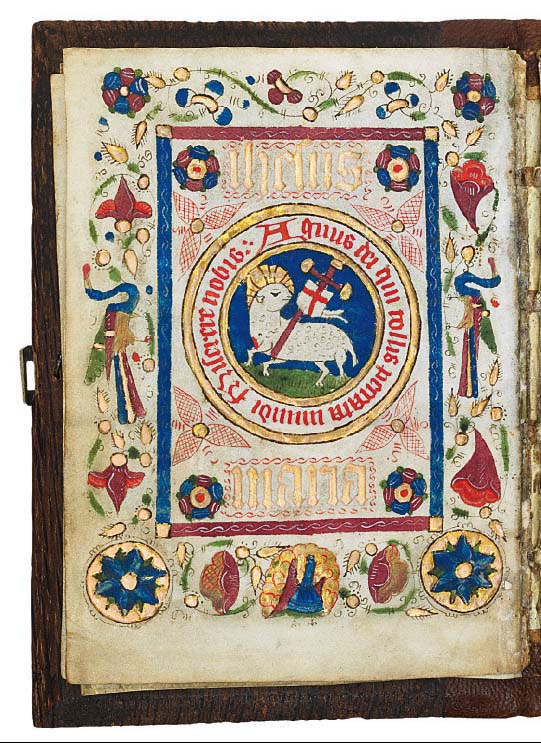 ihesus
Agnus dei qui tollis peccata mundi miserere nobis:.
maria